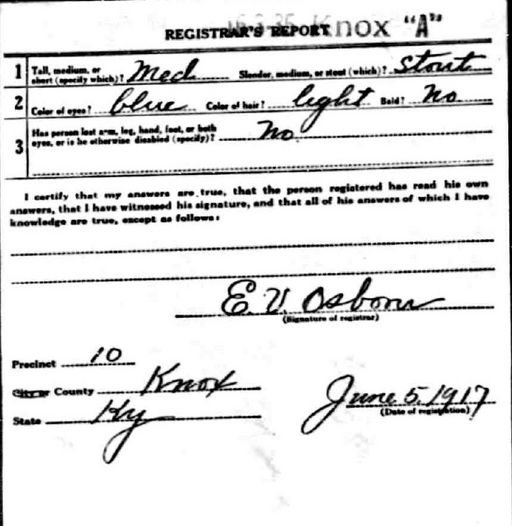 16-3-35 Knox "A"
REGISTRAR'S REPORT
1 Tall, medium, or short (specify which)? Med Slender, medium, or stout (which)? Stout
2 Color of eyes? blue Color of hair? light Bald? No
3 Has person lost arm, leg, hand, foot, or both eyes, or is he otherwise disabled (specify)? No
I certify that my answers are true, that the person registered has read his own
answers, that I have witnessed his signature, and that all of his answers of which I have
knowledge are true, except as follows:
E. V. Osborn
(Signature of registrar)
Precinct 10
City or County Knox
State Ky
June 5, 1917
(Date of registration)